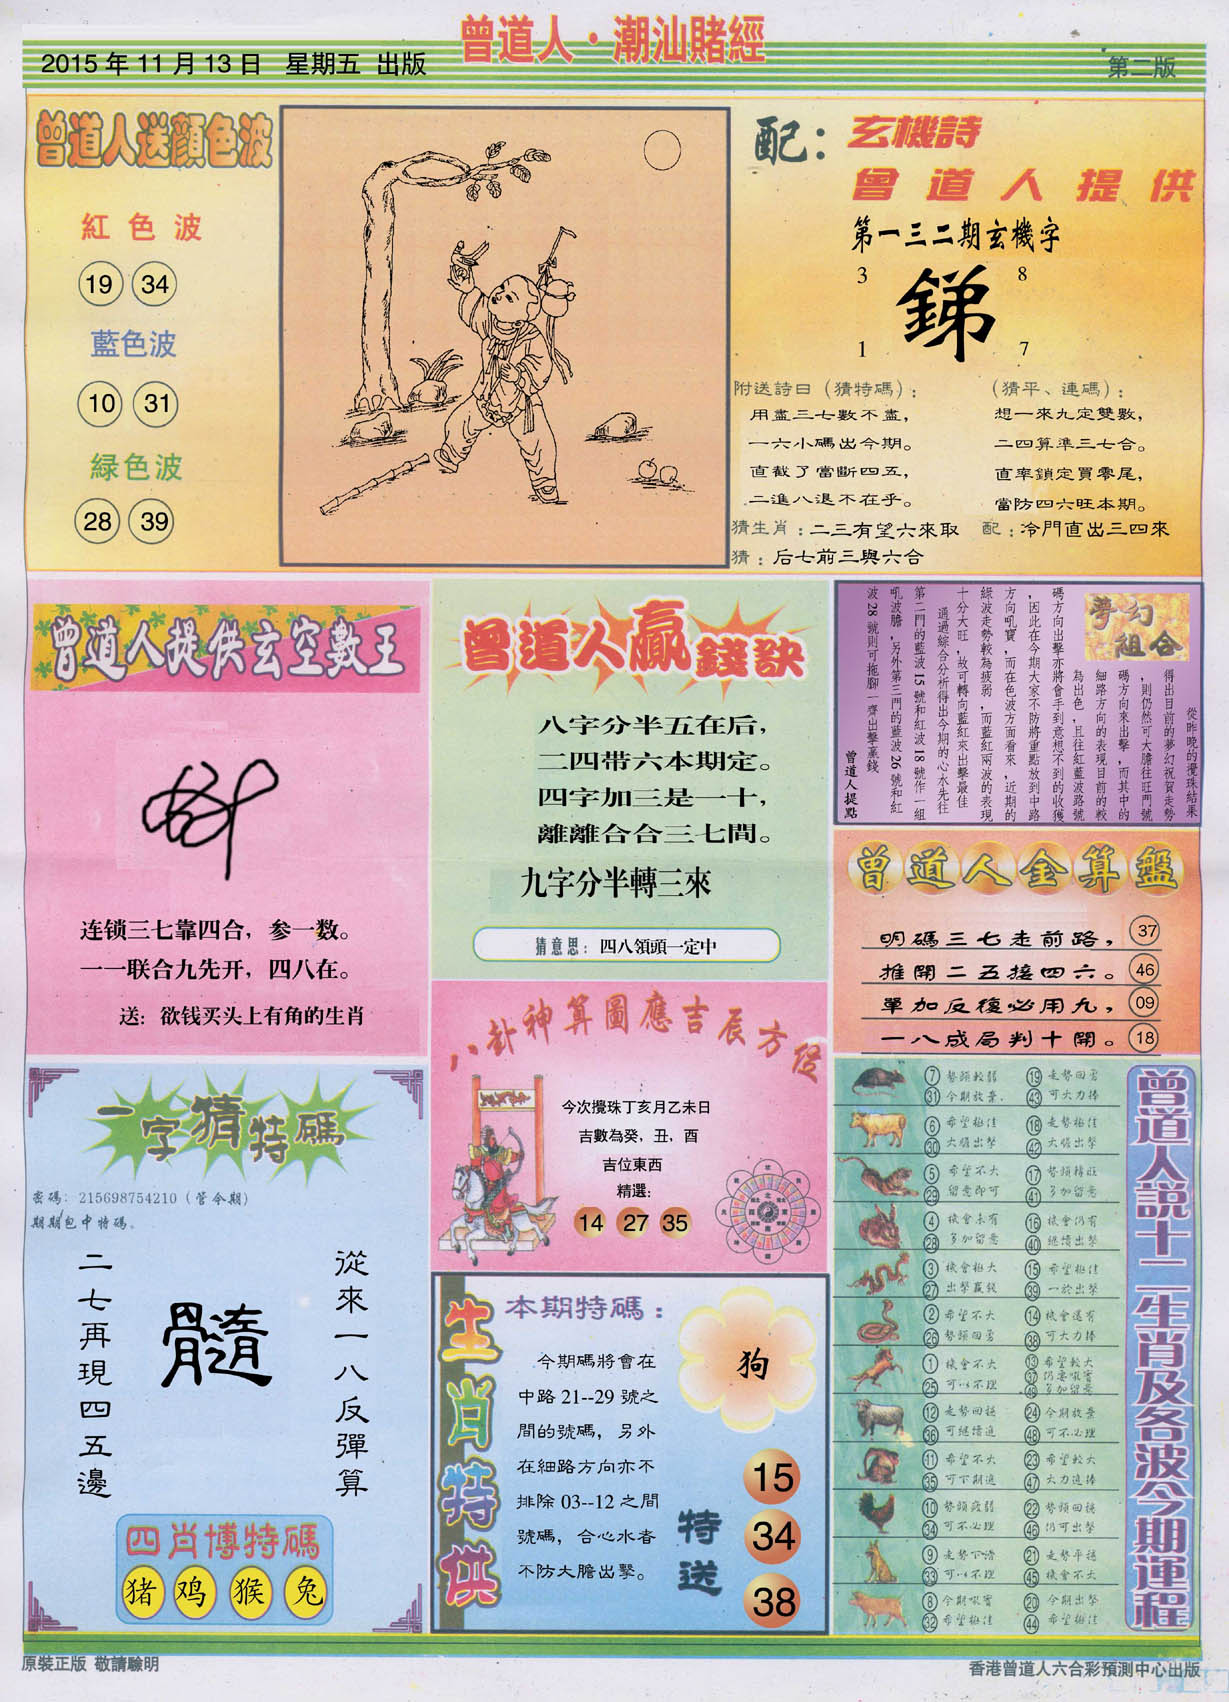 曾道人·潮汕賭經
2015年11月13日 星期五 出版
第二版
曾道人送顏色波
紅色波
19 34
藍色波
10 31
緑色波
28 39
配：玄機詩
曾道人提供
第一三二期玄機字
3 8
銻
1 7
附送詩日（猜特碼）：
用盡三七數不盡，
一六小碼出今期。
直截了當斷四五，
二進八退不在乎。
（猜平、連碼）：
想一來九定雙數，
二四算準三七合。
直率鎖定買零尾，
當防四六旺本期。
猜生肖：二三有望六來取
配：冷門直出三四來
猜：后七前三與六合
曾道人提供玄空數王
连锁三七靠四合，参一数。
一一联合九先开，四八在。
送：欲钱买头上有角的生肖
曾道人贏錢訣
八字分半五在后，
二四带六本期定。
四字加三是一十，
離離合合三七間。
九字分半轉三來
猜意思：四八領頭一定中
夢幻組合
從昨晚的攪珠結果
得出目前的夢幻祝賀走勢
，則仍然可大膽往旺門號
碼方向來出擊，而其中的
細路方向的表現目前的較
為出色，且往紅藍波路號
碼方向出擊亦將會手到意想不到的收獲
，因此在今期大家不防將重點放到中路
方向吼寶，而在色波方面看來，近期的
綠波走勢較為疲弱，而藍紅兩波的表現
十分大旺，故可轉向藍紅來出擊最佳
通過綜合分析得出今期的心水先往
第二門的藍波15號和紅波18號作一組
吼波膽，另外第三門的藍波26號和紅
波28號則可拖腳一齊出擊贏錢
曾道人提點
曾道人金算盤
明碼三七走前路， 37
推開二五接四六。 46
單加反後必用九， 09
一八成局判十開。 18
八卦神算圖應吉辰方位
今次攪珠丁亥月乙未日
吉數為癸，丑，酉
吉位東西
精選：
14 27 35
一字猜特碼
密碼：215698754210（管今期）
期期包中特碼。
從來一八反彈算
髓
二七再現四五邊
四肖博特碼
猪 鸡 猴 兔
生肖特供
本期特碼：
今期碼將會在
中路21--29號之
間的號碼，另外
在細路方向亦不
排除03--12之間
號碼，合心水者
不防大膽出擊。
狗
特送
15
34
38
曾道人説十二生肖及各波今期運程
7 勢頭較弱 19 走勢回勇
31 今期放棄 43 可大力捧
6 希望極佳 18 走勢極佳
30 大膽出擊 42 大膽出擊
5 希望不大 17 勢頭轉旺
29 留意即可 41 多加留意
4 機會未有 16 機會仍有
28 多加留意 40 繼續出擊
3 機會極大 15 希望極佳
27 出擊贏錢 39 一於出擊
2 希望不大 14 機會還有
26 勢頭回勇 38 可大力捧
1 機會不大 13 希望較大
25 可以不理 37 仍要吼實
49 多加留意
12 走勢回穩 24 今期放棄
36 可繼續追 48 可不必理
11 希望不大 23 希望較大
35 可下期追 47 大力追捧
10 勢頭疲弱 22 勢頭回穩
34 可不必理 46 仍可出擊
9 走勢下滑 21 走勢平穩
33 可以不理 45 機會不大
8 今期吼實 20 今期出擊
32 希望極佳 44 希望極佳
原裝正版 敬請驗明
香港曾道人六合彩預測中心出版